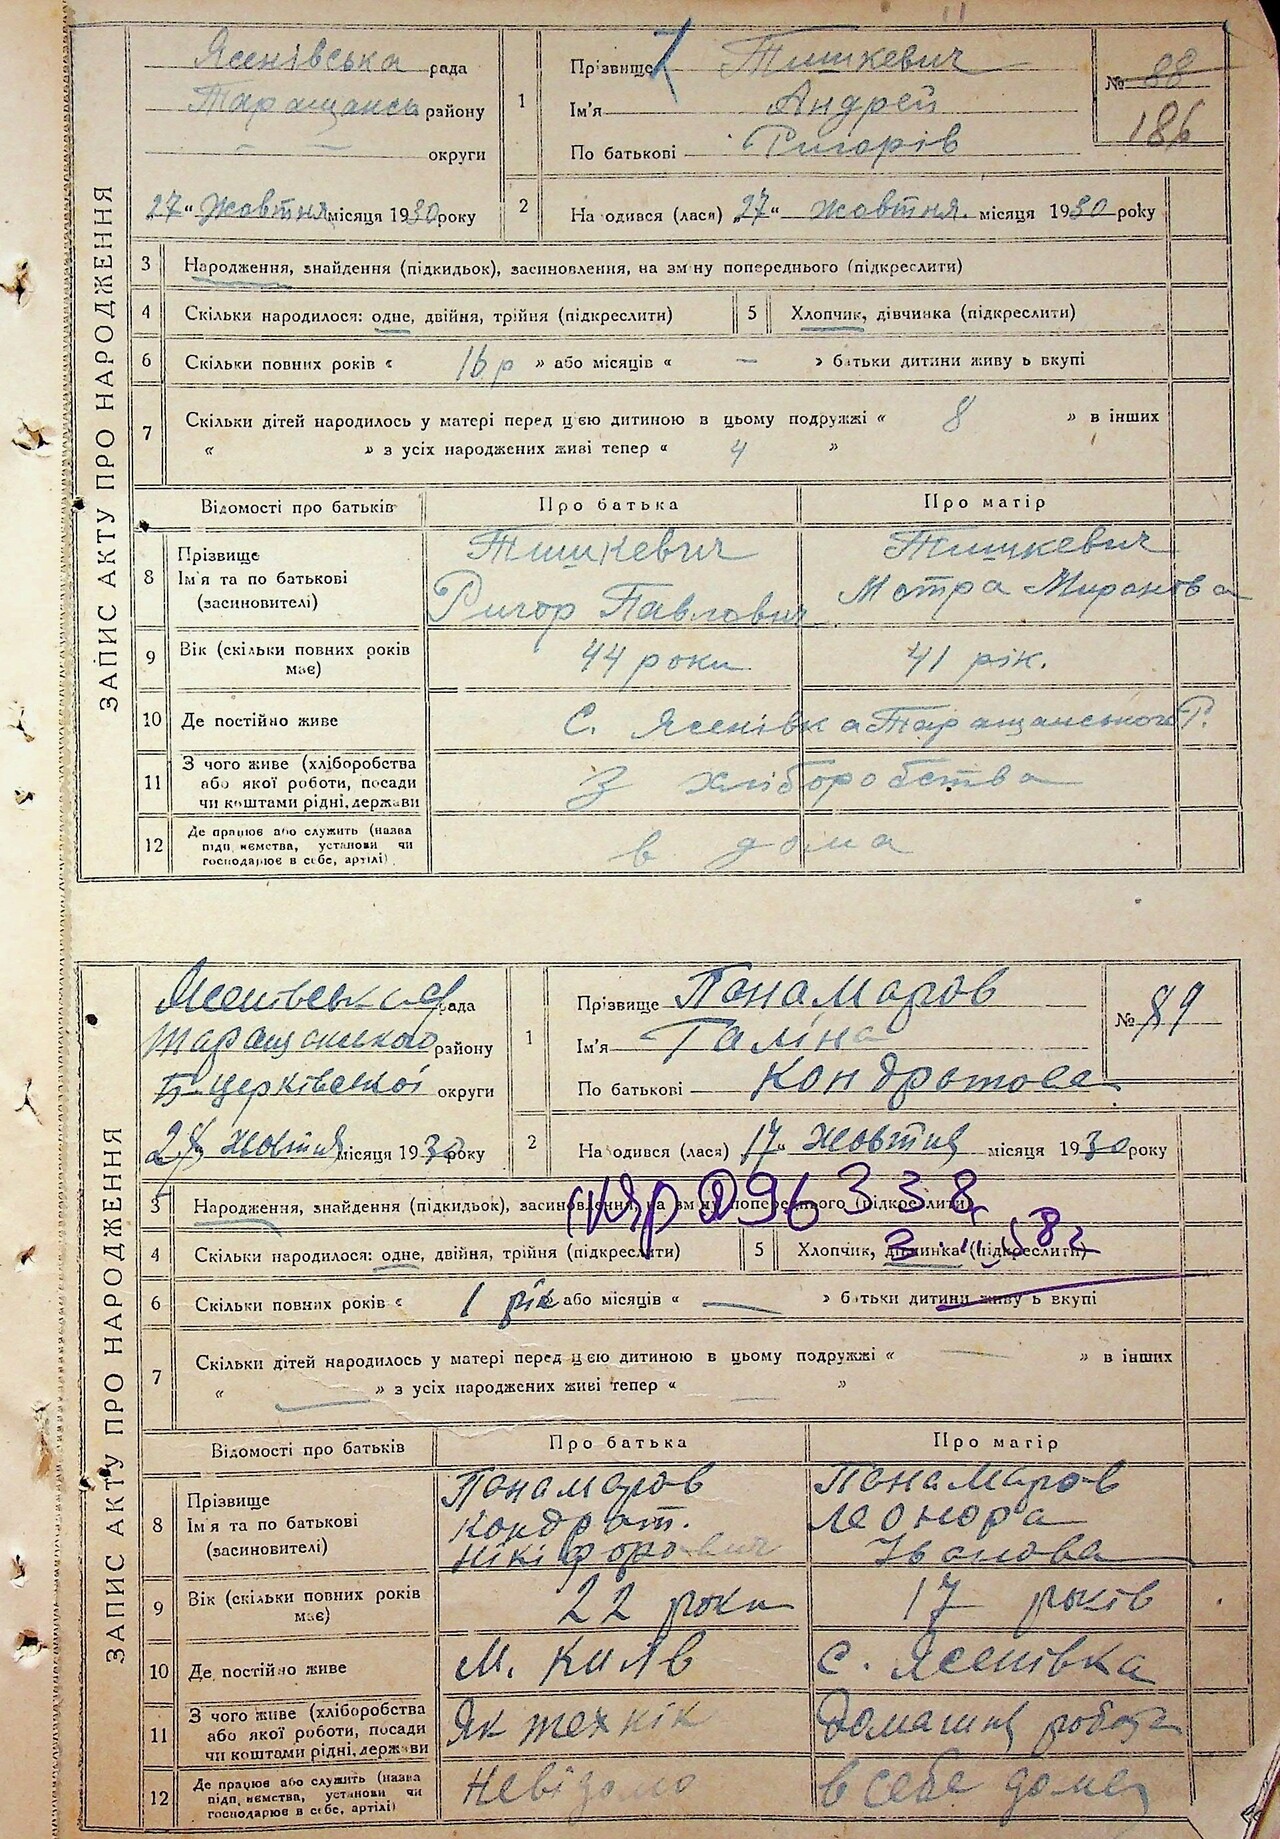 ЗАПИС АКТУ ПРО НАРОДЖЕННЯ
Ясенівська рада
Таращанськ району
округи
27 " Жовтня місяця 1930 року
1 Прізвище Тишкевич
Ім'я Андрей
По батькові Ригорів
№ 88
186
2 На одився (лася) "27" жовтня місяця 1930 року
3 Народження, знайдення (підкидьок), засиновлення, на зм ну попереднього (підкреслити)
4 Скільки народилося: одне, двійня, трійня (підкреслити) 5 Хлопчик, дівчинка (підкреслити)
6 Скільки повних років « 16 р » або місяців « – » батьки дитини живу ь вкупі
7 Скільки дітей народилось у матері перед цією дитиною в цьому подружжі « 8 » в інших
« » з усіх народжених живі тепер « 4 »
Відомості про батьків Про батька Про матір
8 Прізвище Ім'я та по батькові (засиновителі)
Тишкевич Ригор Павлович
Тишкевич Мотра Миранова
9 Вік (скільки повних років має) 44 роки 41 рік.
10 Де постійно живе С. Ясенівка Таращанського Р.
11 З чого живе (хліборобства або якої роботи, посади чи коштами рідні, держави З хліборобства
12 Де працює або служить (назва підп ємства, установи чи господарює в себе, артілі) в дома
ЗАПИС АКТУ ПРО НАРОДЖЕННЯ
рада
Таращанського району
Б-Церківської округи
місяця 1930 року
1 Прізвище Понамаров
Ім'я Галіна
По батькові Кондратова
№ 89
2 На одився (лася) 17 " жовтня місяця 1930 року
3 Народження, знайдення (підкидьок), засиновлення, на зм ну попереднього (підкреслити)
4 Скільки народилося: одне, двійня, трійня (підкреслити) 5 Хлопчик, дівчинка (підкреслити)
6 Скільки повних років « 1 рік або місяців « — » батьки дитини живу ь вкупі
7 Скільки дітей народилось у матері перед цією дитиною в цьому подружжі « — » в інших
« — » з усіх народжених живі тепер « — »
Відомості про батьків Про батька Про матір
8 Прізвище Ім'я та по батькові (засиновителі)
Понамаров Кондрат. Нікіфорович
Понамаров Леонора Іванова
9 Вік (скільки повних років має) 22 роки 17 років
10 Де постійно живе м. Київ с. Ясенівка
11 З чого живе (хліборобства або якої роботи, посади чи коштами рідні, держави Як технік Домашня робота
12 Де працює або служить (назва підп ємства, установи чи господарює в себе, артілі) Невідомо в себе дома